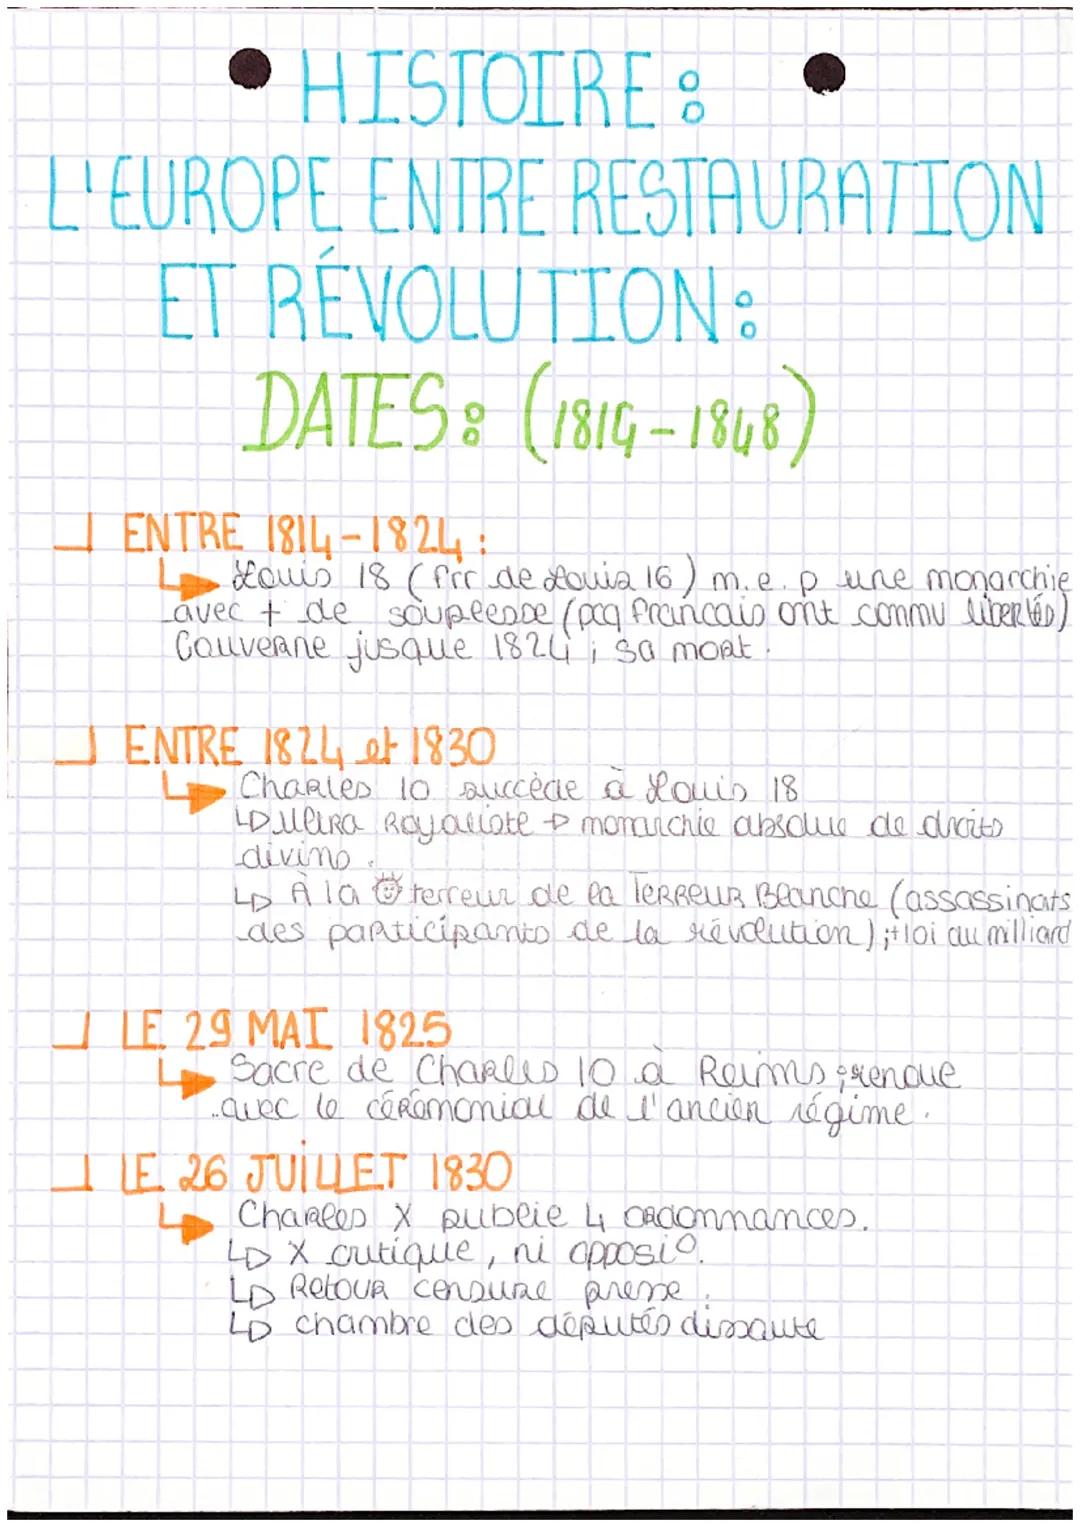 HISTOIRE :
L'EUROPE ENTRE RESTAURATION
ET RÉVOLUTION :
DATES : (1814-1848)
ENTRE 1814-1824 :
Louis 18 (frr de Louis 16) m.e.p une monarchie
avec + de souplesse (pcq francais ont connu libertés)
Gouverne jusque 1824 ; sa mort.
ENTRE 1824 et 1830
Charles 10 succède à Louis 18
Ultra Royaliste → monarchie absolue de droits
divins.
À la terreur de la Terreur Blanche (assassinats
des participants de la révolution) ;+loi au milliard
LE 29 MAI 1825
Sacre de Charles 10 à Reims ; renoue
avec le cérémonial de l'ancien régime.
LE 26 JUILLET 1830
Charles X publie 4 ordonnances.
X critique, ni opposi°.
Retour censure presse.
chambre des députés dissoute